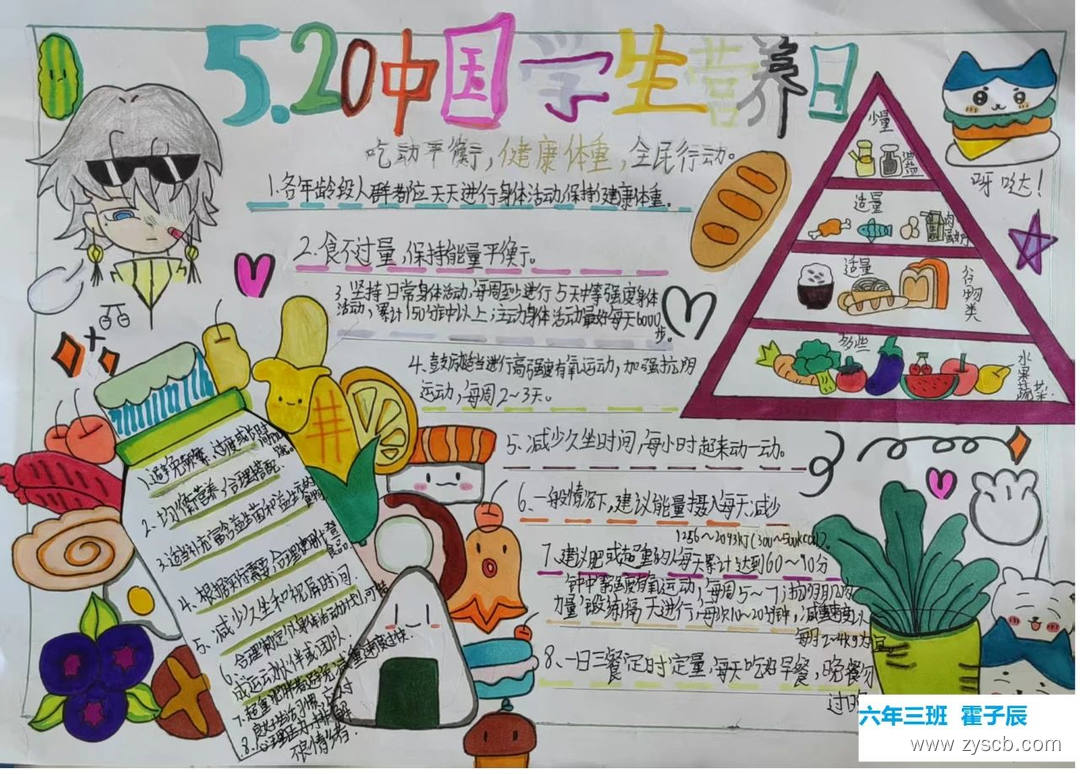 5.20中国学生营养日
吃动平衡,健康体重,全民行动。
1.各年龄段人群都应天天进行身体活动保持健康体重。
2.食不过量,保持能量平衡。
3.坚持日常身体活动,每周至少进行5天中等强度身体
活动,累计150分钟以上;主动身体活动最好每天6000
步。
4.鼓励适当进行高强度有氧运动,加强抗阻
运动,每周2~3天。
5.减少久坐时间,每小时起来动一动。
6.一般情况下,建议能量摄入每天减少
1256~2093kJ(300~500kcal)。
7.建议肥或超重的人每天累计达到60~90分
钟中等强度有氧运动,每周5~7;抗阻肌
力量锻炼隔天进行,每次10~20分钟,减重速度以
每月2~4kg为宜
8、一日三餐定时定量,每天吃好早餐,晚餐勿
过
少量
适量
适量
谷物类
多些
水果
蔬菜
呀哒!
2.均衡营养,合理搭配
3.适当补充富含益生菌和益生元的
4.根据实际需要合理
5、减少久坐和视屏时间
6.合理制定
7.超重肥胖者
8.
六年三班 霍子辰
www.zyscb.com